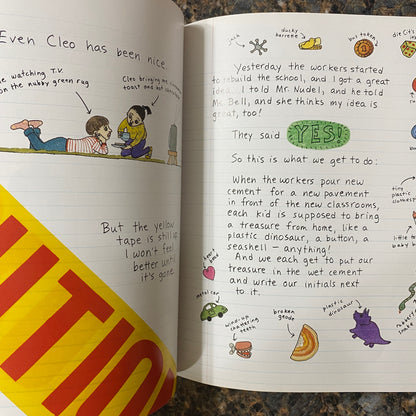 Even Cleo has been nice.
me watching T.V.
on the nubby green rug
Cleo bringing me
toast and hot
But the yellow
tape is still up.
I won't feel
better until
it's gone.
UTIO
jack
ducky
barrette
bus token
die
Yesterday the workers started
to rebuild the school, and I got a great
idea. I told Mr. Nudel, and he told
Ms. Bell, and she thinks my idea is
great, too!
They said YES!
So this is what we get to do:
When the workers pour new
cement for a new pavement
in front of the new classrooms,
each kid is supposed to bring
a treasure from home, like a
plastic dinosaur, a button, a
seashell - anything!
And we each get to put our
treasure in the wet cement
and write our initials next
to it.
tiny
plastic
little
baby
heart
metal car
wind-up
chattering
teeth
broken
geode
plastic
dinosaur
rubber